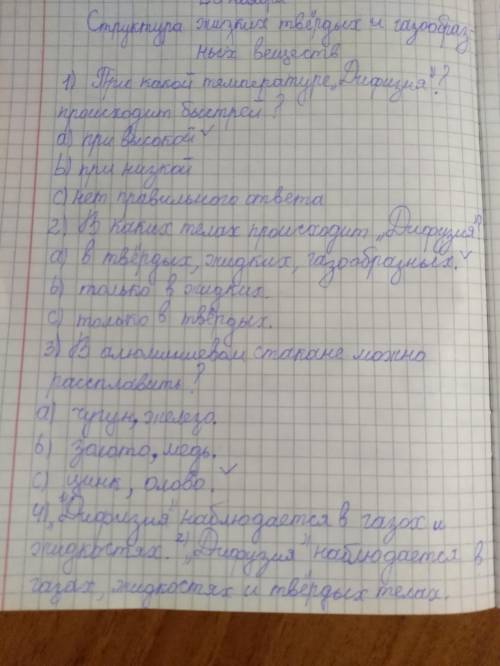 Структура жизких твёрдых и газообраз-
ных веществ
1) При какой температуре „Дифизия"?
происходит быстрей?
a) при высокой ✓
b) при низкой
c) нет правильного ответа
2) В каких телах происходит „Дифузия"
a) в твёрдых, жидких, газообразных. ✓
b) только в жидких.
c) только в твёрдых.
3) В алюминиевом стакане можно
рассплавить?
a) чугун, железо.
b) золото, медь.
c) цинк, олово. ✓
4) 1) „Дифизия" наблюдается в газох и
жидкостях. 2) „Дифузия" наблюдается в
газах, жидкостях и твёрдых телах.